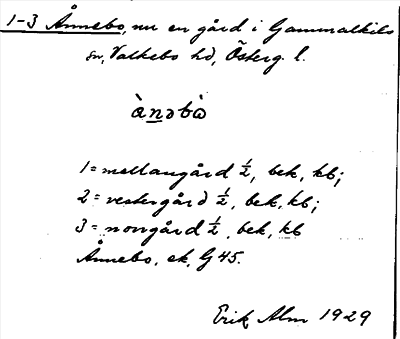 1-3 Ånnebo, nu en gård i Gammalkils
sn, Valkebo hd, Österg. l.
ànəbò
1 = mellangård 1/2, bek, kb;
2 = vestergård 1/2, bek, kb;
3 = norrgård 1/2, bek, kb
Ånnebo, ek, G 45.
Erik Alm 1929